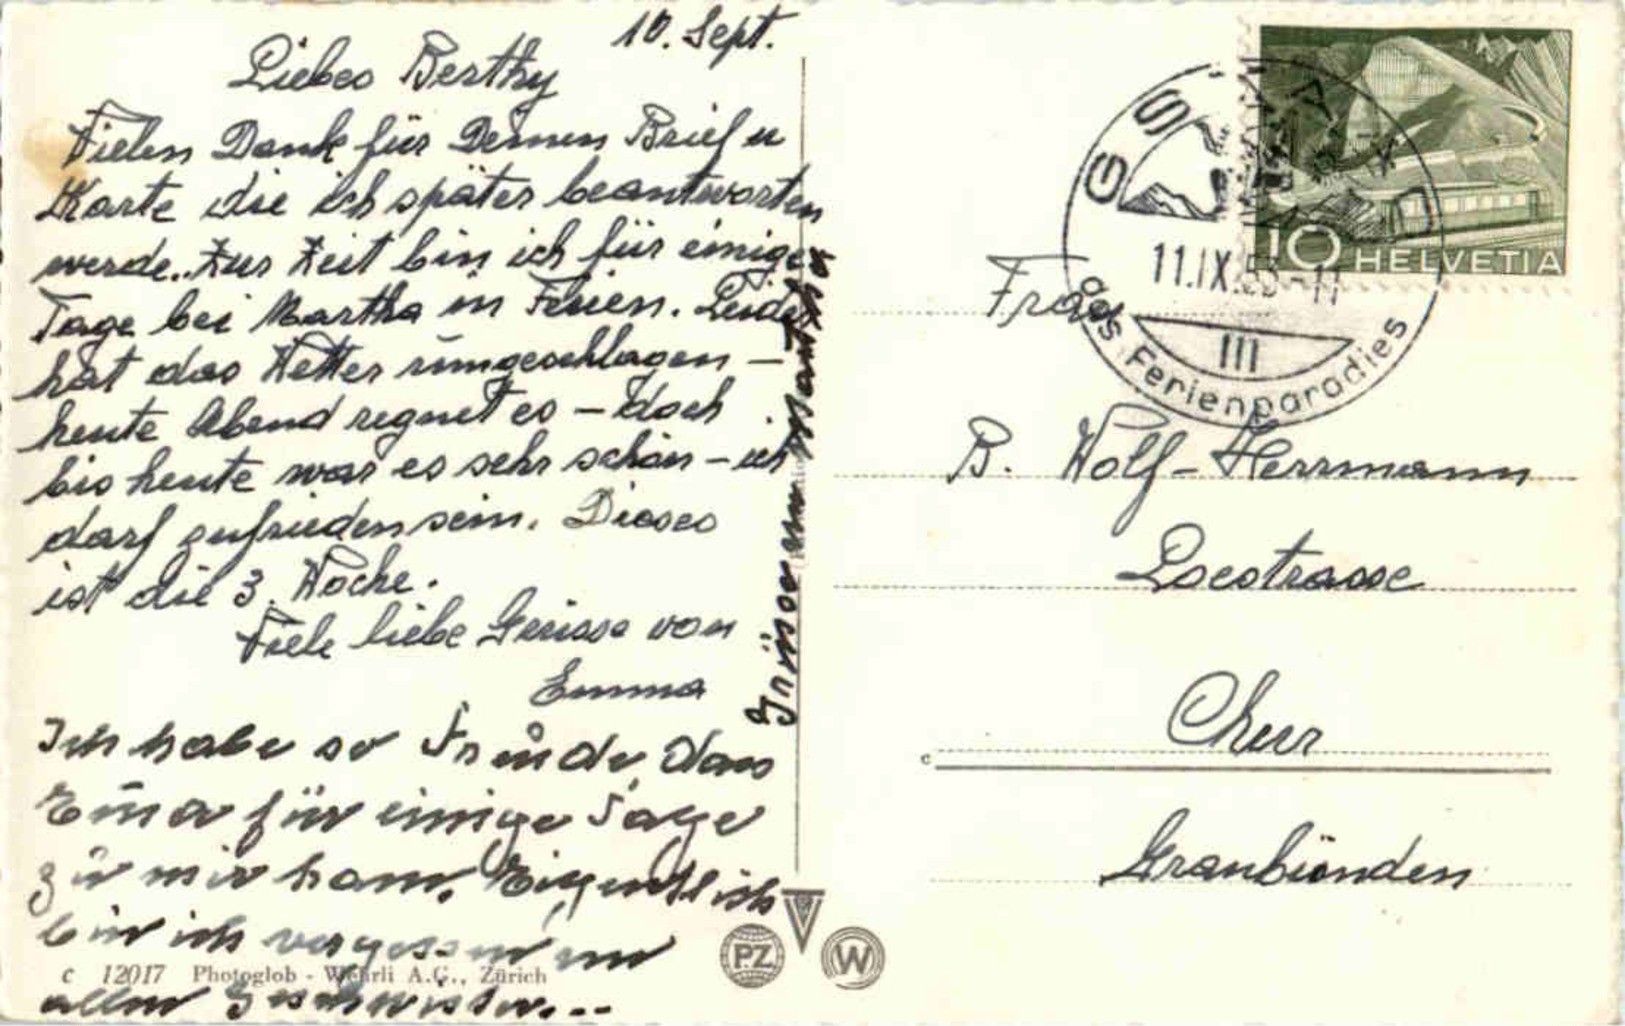 10. Sept.
Liebes Berthy
Vielen Dank für Deinen Brief u
Karte die ich später beantworten
werde. Zur Zeit bin ich für einige
Tage bei Martha in Ferien. Leider
hat das Wetter umgeschlagen –
heute Abend regnet es – doch
bis heute war es sehr schön – ich
darf zufrieden sein. Dieses
ist die 3. Woche.
Viele liebe Grüsse von
Emma
Ich habe so Freude, dass
Ema für einige Tage
zu mir kam. Eigentlich
bin ich vergessen von
allen Geschwister...
Grüsse von Martha
c 12017 Photoglob - Wehrli A.G., Zürich
PZ
W
GSTAAD
11.IX. -11
III
das Ferienparadies
10 HELVETIA
Frau
B. Wolf-Herrmann
Loestrasse
Chur
c
Graubünden